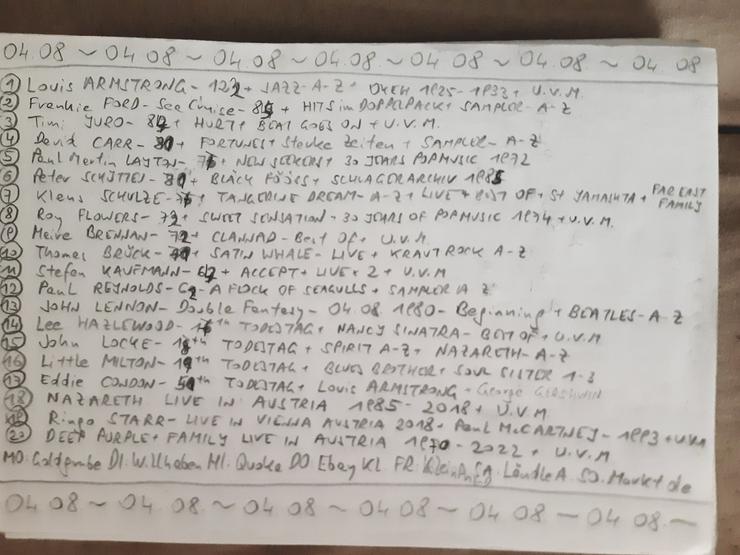 04.08 ~ 04 08 ~ 04.08 ~ 04.08 ~ 04 08 ~ 04 08 ~ 04 08
① Louis ARMSTRONG - 122 + JAZZ - A-Z + OKEH 1925-1933 + U.V.M.
② Frankie FORD - Sea Cruise - 85 + HITS im DOPPELPACK + SAMPLER - A-Z
③ Timi YURO - 82 + HURT + BEAT GOES ON + U.V.M.
④ David CARR - + FORTUNES + Starke Zeiten + SAMPLER - A-Z
⑤ Paul Martin LAYTON - + NEW SEEKERS + 30 JEARS POPMUSIC 1972
⑥ Peter SCHÜTTEN - + BLÄCK FÖÖSS + SCHLAGERARCHIV 1985
⑦ Klaus SCHULZE - + TANGERINE DREAM - A-Z + LIVE + BEST OF + ST YAMASHTA + FAR EAST FAMILY
⑧ Roy FLOWERS - 72 + SWEET SENSATION - 30 YEARS OF POPMUSIC 1974 + U.V.M.
⑨ Maire BRENNAN - 72 + CLANNAD - Best OF + U.V.M.
⑩ Thomas BRÜCK - + SATIN WHALE - LIVE + KRAUTROCK A-Z
⑪ Stefan KAUFMANN - 62 + ACCEPT + LIVE X 2 + U.V.M
⑫ Paul REYNOLDS - 62 - A FLOCK OF SEAGULLS + SAMPLER A Z
⑬ JOHN LENNON - Double Fantasy - 04.08.1980 - Beginning + BEATLES - A-Z
⑭ Lee HAZLEWOOD - th TODESTAG + NANCY SINATRA - BEST OF + U.V.M
⑮ John LOCKE - 18th TODESTAG + SPIRIT A-Z + NAZARETH - A-Z
⑯ Little MILTON - 19th TODESTAG + BLUES BROTHER + SOUL SISTER 1-3
⑰ Eddie CONDON - th TODESTAG + Louis ARMSTRONG + George GERSHWIN
⑱ NAZARETH LIVE IN AUSTRIA 1985 - 2018 + U.V.M.
⑲ Ringo STARR - LIVE IN VIENNA AUSTRIA 2018 + Paul McCARTNEY - 1993 + UVM
⑳ DEEP PURPLE + FAMILY LIVE IN AUSTRIA 1970 - 2022 + U.V.M.
MO. Goldgrube DI. Willhaben MI. Quoka DO Ebay KL FR. SA. LändleA. SO. Markt de
04 08 ~ 04 08 ~ 04 08 ~ 04 08 ~ 04 08 — 04 08 —